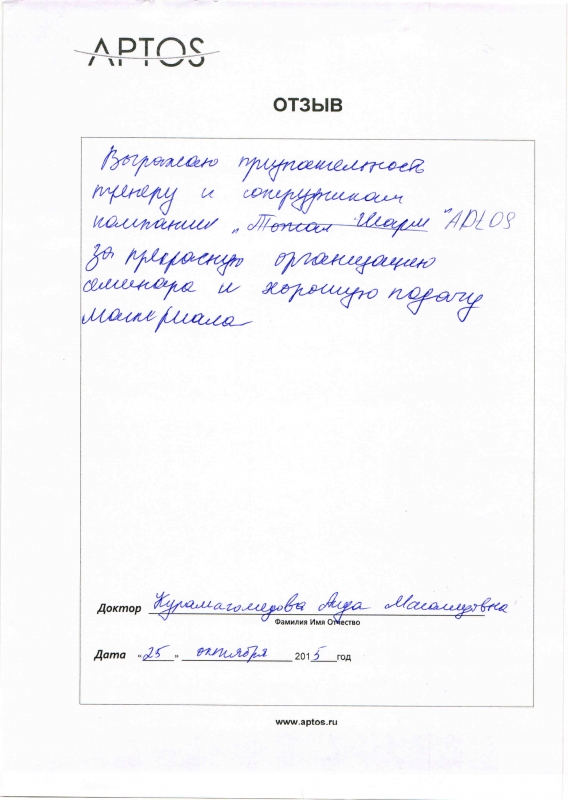 APTOS
ОТЗЫВ
Выражаю признательность
тренеру и сотрудникам
компании „Тотал Шарм" APTOS
за прекрасную организацию
семинара и хорошую подачу
материала
Доктор Курамагомедова Аида
Фамилия Имя Отчество
Дата "25" октября 2015 год
www.aptos.ru